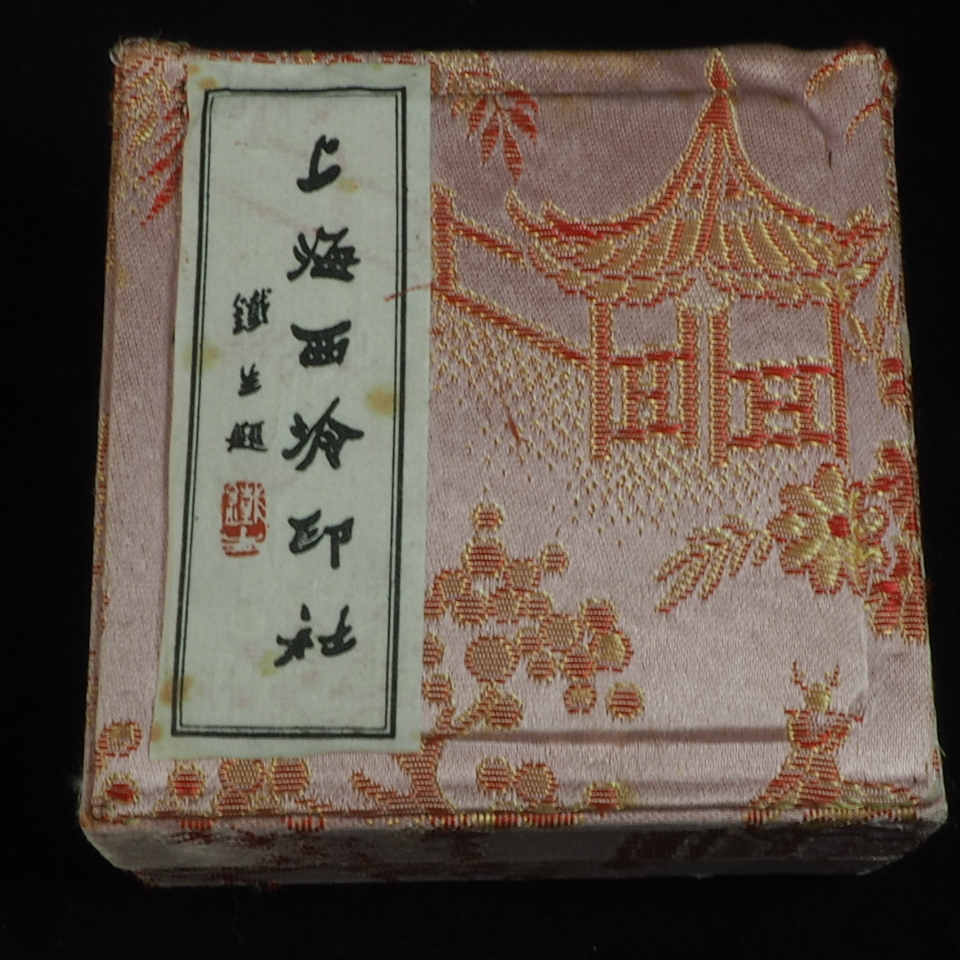 上海西泠印社
鐵士題